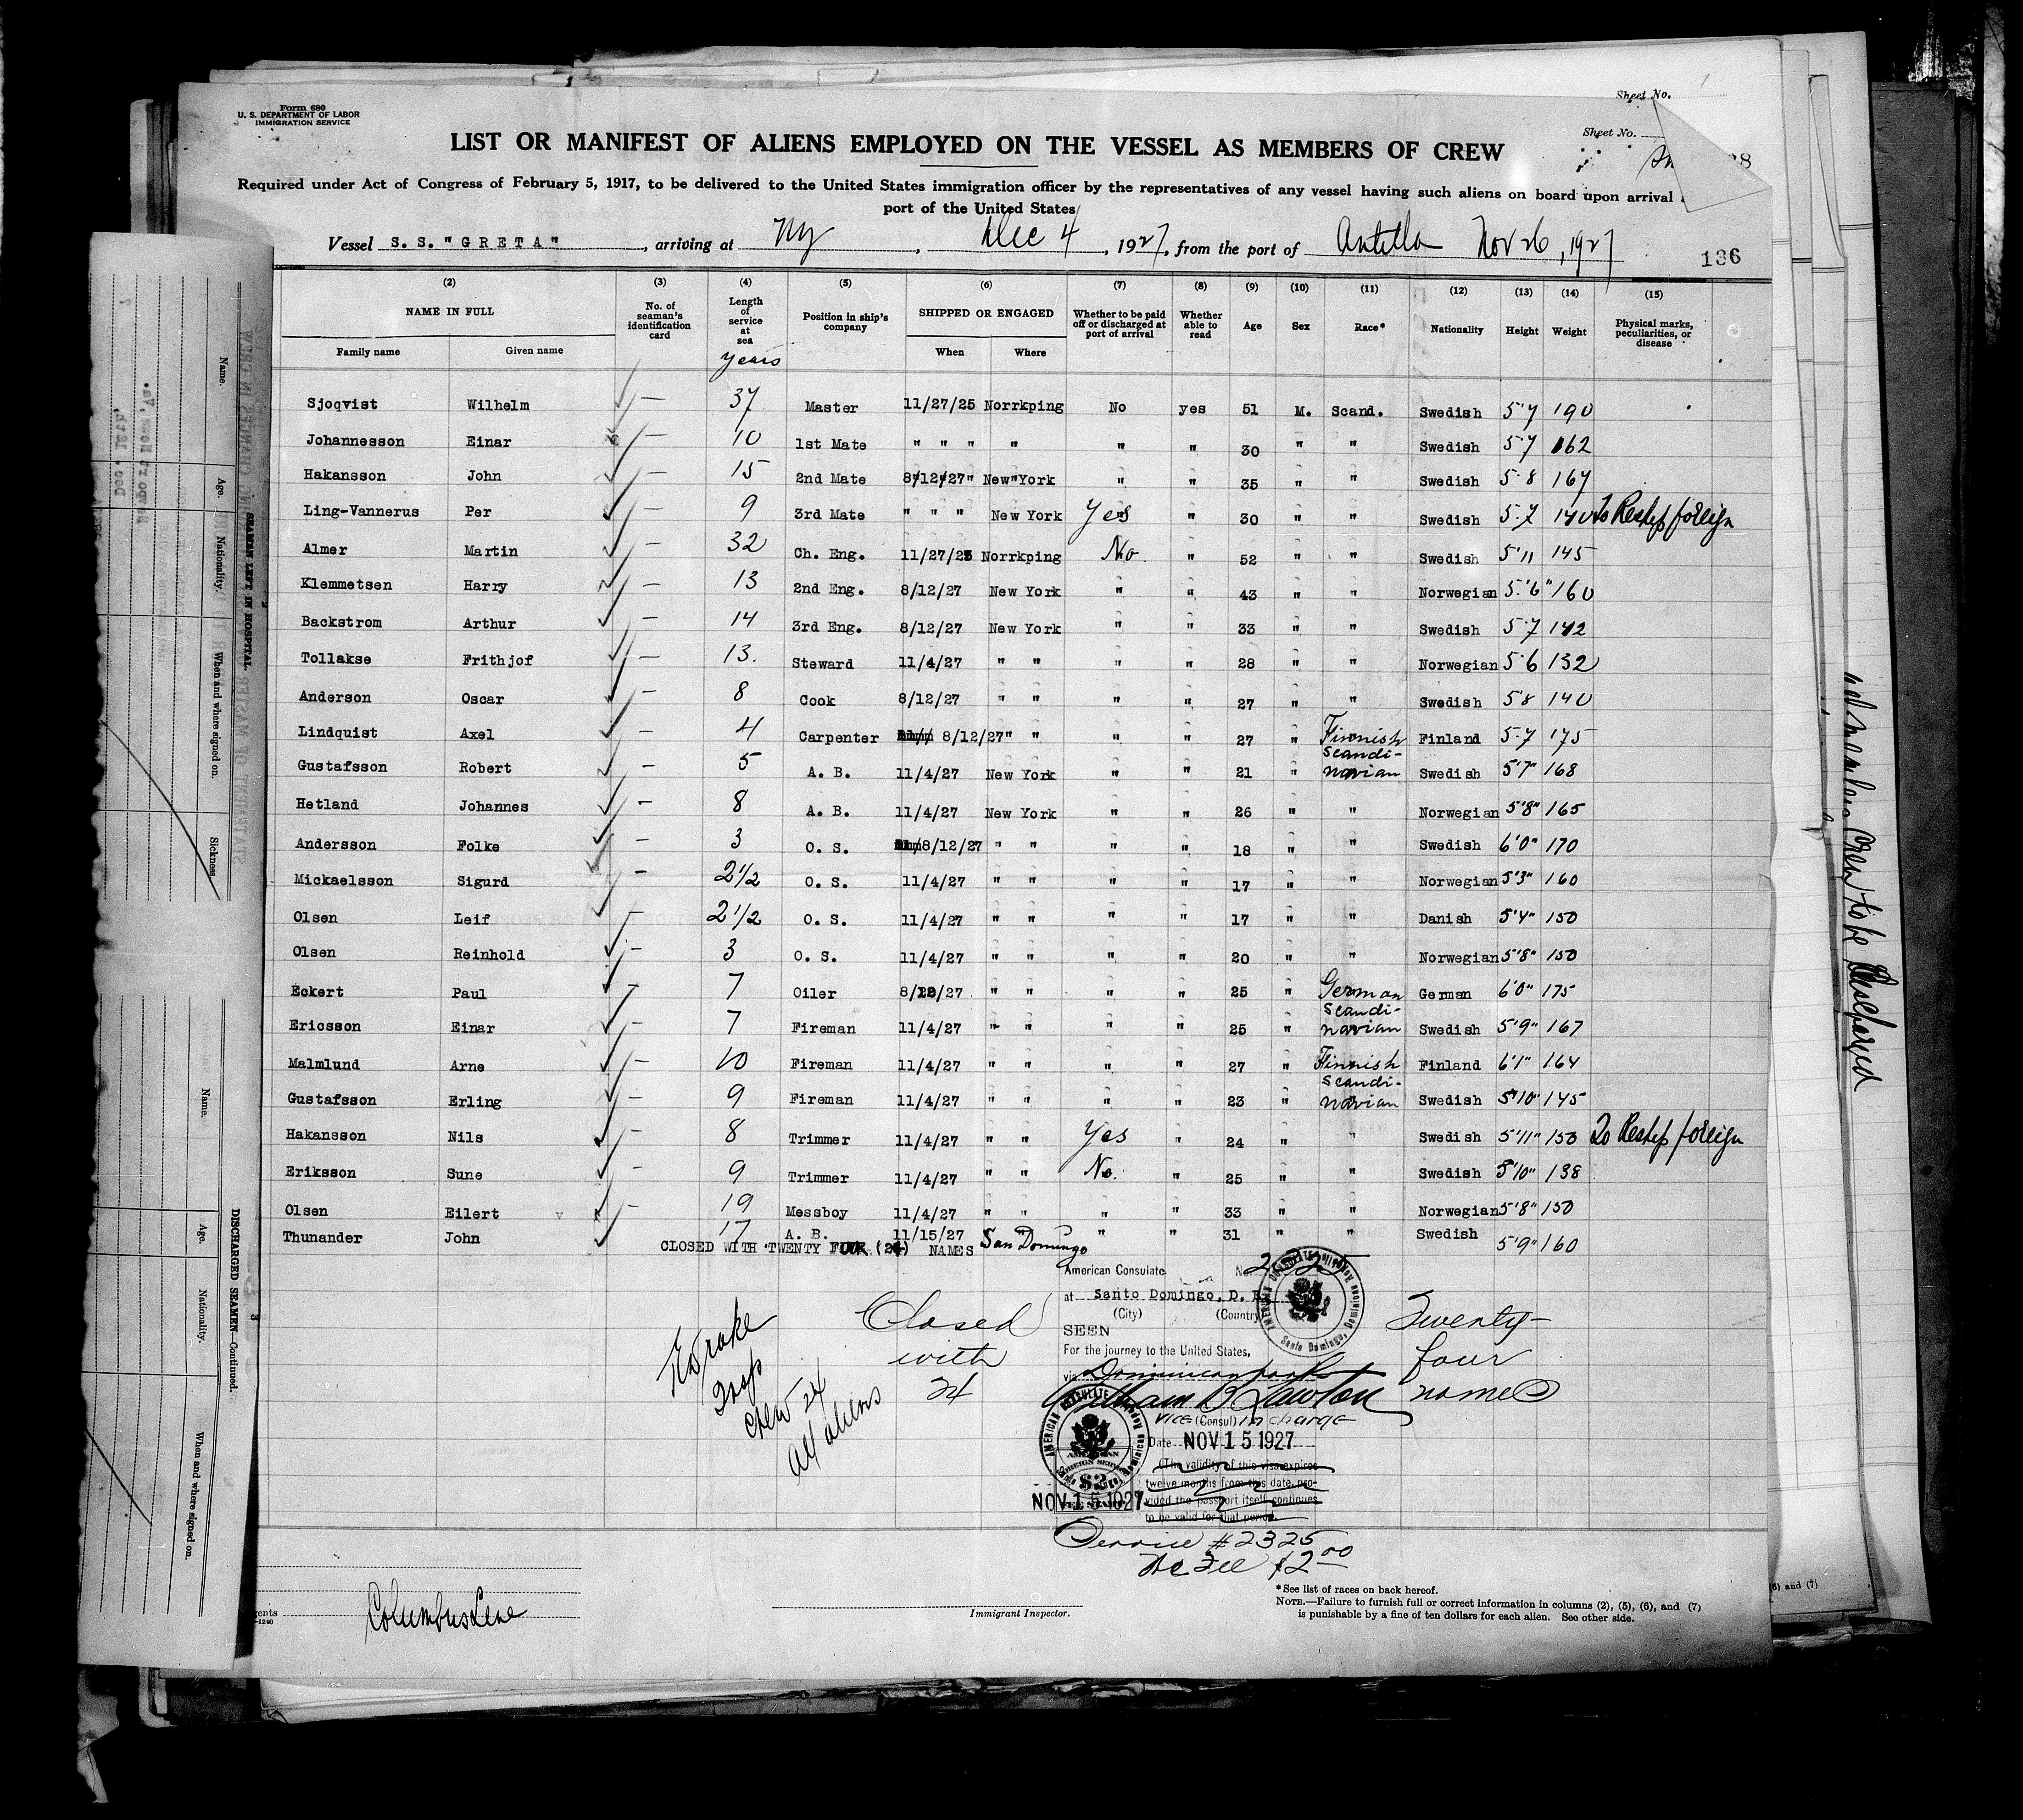 Form 680
U. S. DEPARTMENT OF LABOR
IMMIGRATION SERVICE
Sheet No.
Sheet No.
LIST OR MANIFEST OF ALIENS EMPLOYED ON THE VESSEL AS MEMBERS OF CREW
Required under Act of Congress of February 5, 1917, to be delivered to the United States immigration officer by the representatives of any vessel having such aliens on board upon arrival
port of the United States
Vessel S. S. "GRETA", arriving at NY, Dec 4, 1927, from the port of Antilla Nov 26, 1927
136
(2) (3) (4) (5) (6) (7) (8) (9) (10) (11) (12) (13) (14) (15)
NAME IN FULL No. of seaman's identification card Length of service at sea Position in ship's company SHIPPED OR ENGAGED Whether to be paid off or discharged at port of arrival Whether able to read Age Sex Race* Nationality Height Weight Physical marks, peculiarities, or disease
Family name Given name years When Where
Sjoqvist Wilhelm — 37 Master 11/27/25 Norrkping No yes 51 M. Scand. Swedish 5'7 190
Johannesson Einar — 10 1st Mate " " " " " " 30 " " Swedish 5'7 162
Hakansson John — 15 2nd Mate 8/12/27" New"York " " 35 " " Swedish 5'8 167
Ling-Vannerus Per — 9 3rd Mate " " " New York Yes " 30 " " Swedish 5'7 140 to Reship foreign
Almer Martin — 32 Ch. Eng. 11/27/25 Norrkping No " 52 " " Swedish 5'11 145
Klemmetsen Harry — 13 2nd Eng. 8/12/27 New York " " 43 " " Norwegian 5'6" 160
Backstrom Arthur — 14 3rd Eng. 8/12/27 New York " " 33 " " Swedish 5'7 142
Tollakse Frithjof — 13. Steward 11/4/27 " " " " 28 " " Norwegian 5'6 132
Anderson Oscar — 8 Cook 8/12/27 " " " " 27 " " Swedish 5'8 140
Lindquist Axel — 4 Carpenter 8/12/27 " " " " 27 " Finnish Finland 5'7 175
Gustafsson Robert — 5 A. B. 11/4/27 New York " " 21 " Scandi-navian Swedish 5'7" 168
Hetland Johannes — 8 A. B. 11/4/27 New York " " 26 " " Norwegian 5'8" 165
Andersson Folke — 3 O. S. 8/12/27 " " " " 18 " " Swedish 6'0" 170
Mickaelsson Sigurd — 2 1/2 O. S. 11/4/27 " " " " 17 " " Norwegian 5'3" 160
Olsen Leif — 2 1/2 O. S. 11/4/27 " " " " 17 " " Danish 5'4" 150
Olsen Reinhold — 3 O. S. 11/4/27 " " " " 20 " " Norwegian 5'8" 150
Eckert Paul — 7 Oiler 8/12/27 " " " " 25 " German German 6'0" 175
Ericsson Einar — 7 Fireman 11/4/27 " " " " 25 " Scandi-navian Swedish 5'9" 167
Malmlund Arne — 10 Fireman 11/4/27 " " " " 27 " Finnish Finland 6'1" 164
Gustafsson Erling — 9 Fireman 11/4/27 " " " " 23 " Scandi-navian Swedish 5'10" 145
Hakansson Nils — 8 Trimmer 11/4/27 " " Yes " 24 " " Swedish 5'11" 150 To Reship foreign
Eriksson Sune — 9 Trimmer 11/4/27 " " No. " 25 " " Swedish 5'10" 138
Olsen Eilert — 19 Messboy 11/4/27 " " " " 33 " " Norwegian 5'8" 150
Thunander John 17 A. B. 11/15/27 San Domingo " " 31 " " Swedish 5'9" 160
CLOSED WITH TWENTY FOUR (24) NAMES
American Consulate No. 2325
at Santo Domingo, D. R.
(City) (Country)
SEEN
For the journey to the United States,
via Dominican ports
William B Lawton
Vice (Consul) in charge
Date NOV 15 1927
(The validity of this visa expires
twelve months from this date, pro-
vided the passport itself continues
to be valid for that period.
NOV 15 1927
Service #2325
Fee $2.00
Closed
with
24
Twenty-
four
names
crew 24
all aliens
AMERICAN CONSULATE
Santo Domingo, Dominican Republic
AMERICAN
FOREIGN SERVICE
$2
FEE STAMP
Columbus Line
Immigrant Inspector.
*See list of races on back hereof.
NOTE.—Failure to furnish full or correct information in columns (2), (5), (6), and (7)
is punishable by a fine of ten dollars for each alien. See other side.
(6) and (7)
Name.
Age.
Nationality.
When and where signed on.
Sickness.
SEAMEN LEFT IN HOSPITAL.
Name.
Age.
Nationality.
When and where signed on.
DISCHARGED SEAMEN—Continued.
Crew to be Discharged